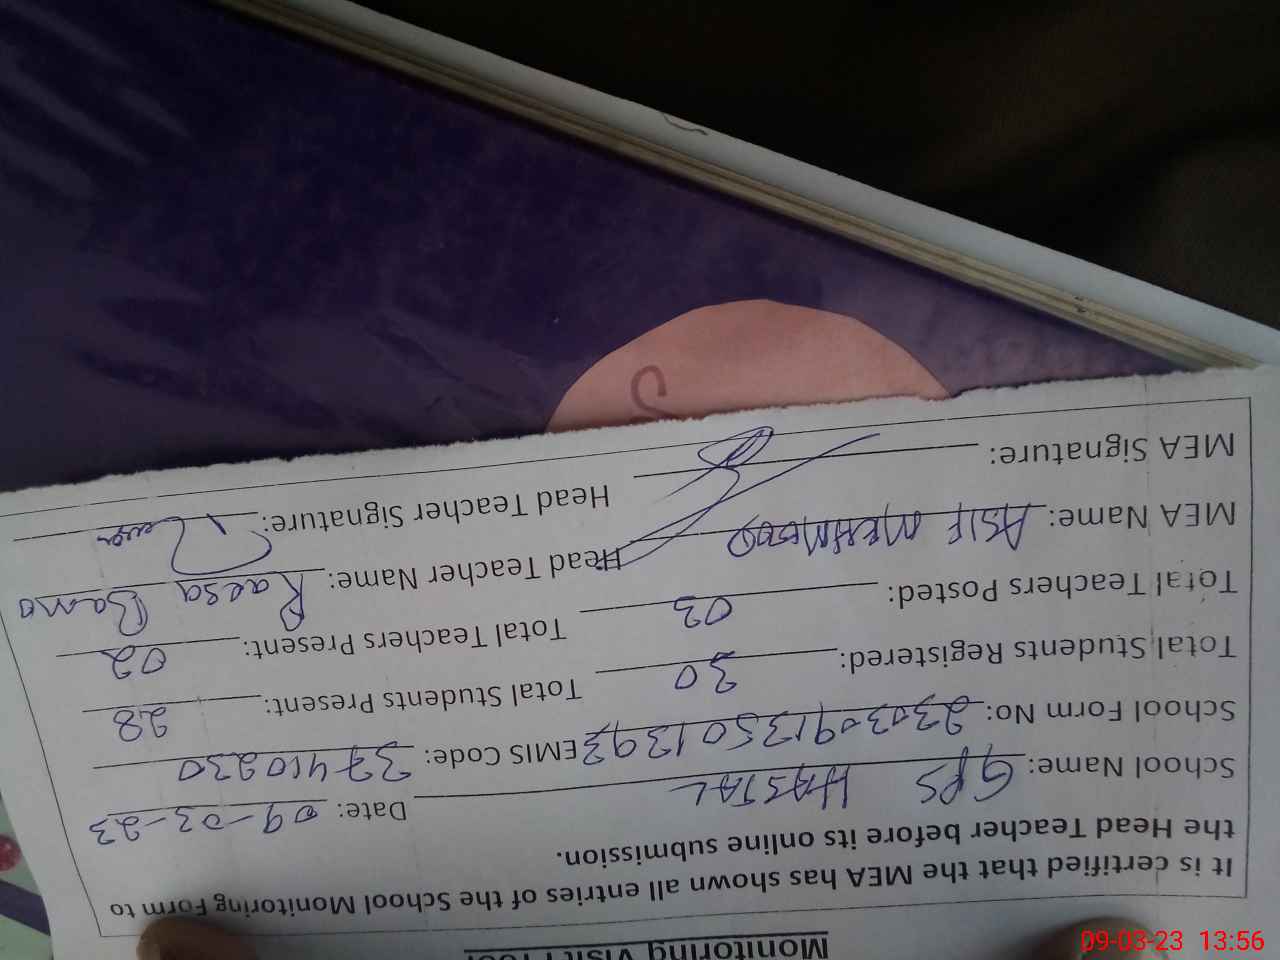 Monitoring Visit Proof
It is certified that the MEA has shown all entries of the School Monitoring Form to
the Head Teacher before its online submission.
School Name: GPS HASTAL Date: 09-03-23
School Form No: 23030913501393 EMIS Code: 37410230
Total Students Registered: 30 Total Students Present: 28
Total Teachers Posted: 03 Total Teachers Present: 02
MEA Name: ASIF MEHMOOD Head Teacher Name: Raesa Bano
MEA Signature: Head Teacher Signature:
09-03-23 13:56